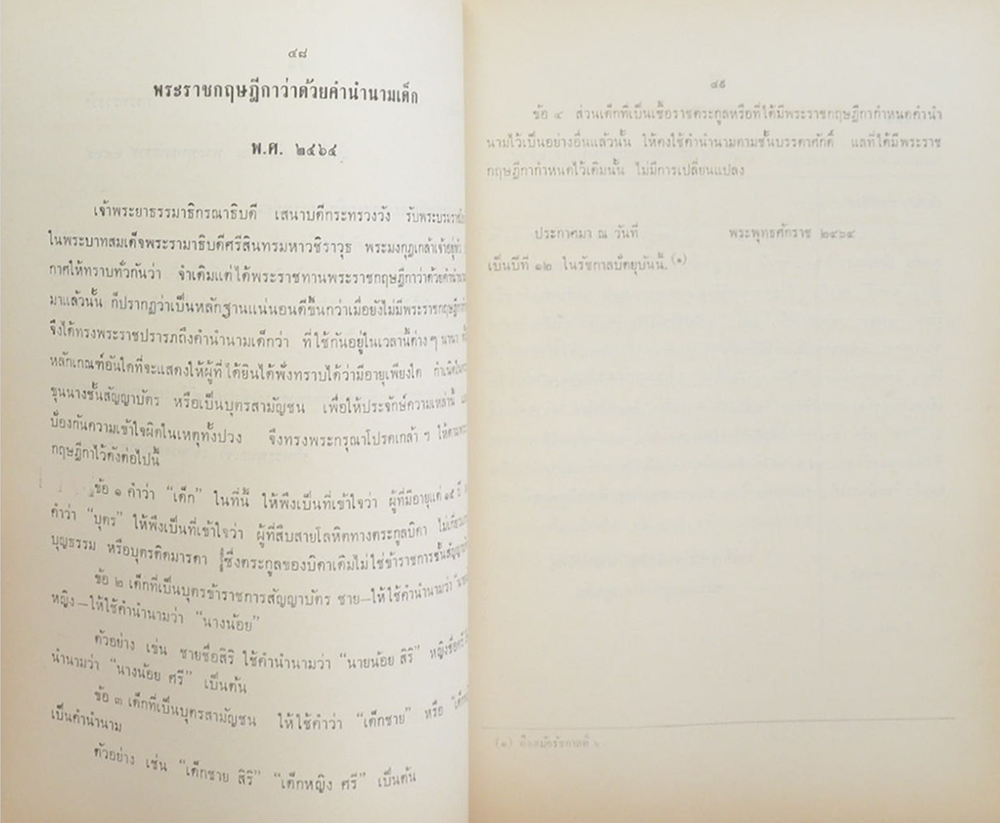 ๔๘
พระราชกฤษฎีกาว่าด้วยคำนำนามเด็ก
พ.ศ. ๒๔๖๔
เจ้าพระยาธรรมาธิกรณาธิบดี เสนาบดีกระทรวงวัง รับพระบรมราช
ในพระบาทสมเด็จพระรามาธิบดีศรีสินทรมหาวชิราวุธ พระมงกุฎเกล้าเจ้าอยู่หัว
กาศให้ทราบทั่วกันว่า จำเดิมแต่ได้พระราชทานพระราชกฤษฎีกาว่าด้วยคำนำนาม
มาแล้วนั้น ก็ปรากฏว่าเป็นหลักฐานแน่นอนดีขึ้นกว่าเมื่อยังไม่มีพระราชกฤษฎีกา
จึงได้ทรงพระราชปรารภถึงคำนำนามเด็กว่า ที่ใช้กันอยู่ในเวลานี้ต่าง ๆ นานา
หลักเกณฑ์อันใดที่จะแสดงให้ผู้ที่ได้ยินได้ฟังทราบได้ว่ามีอายุเพียงใด กำเนิดใน
ขุนนางชั้นสัญญาบัตร หรือเป็นบุตรสามัญชน เพื่อให้ประจักษ์ความเหล่านี้
ป้องกันความเข้าใจผิดในเหตุทั้งปวง จึงทรงพระกรุณาโปรดเกล้า ฯ ให้ตรา
กฤษฎีกาไว้ดังต่อไปนี้
ข้อ ๑ คำว่า “เด็ก” ในที่นี้ ให้พึงเป็นที่เข้าใจว่า ผู้ที่มีอายุแต่ ๑๕ ปี
คำว่า “บุตร” ให้พึงเป็นที่เข้าใจว่า ผู้ที่สืบสายโลหิตทางตระกูลบิดา ไม่เกี่ยว
บุญธรรม หรือบุตรติดมารดา ซึ่งตระกูลของบิดาเดิมไม่ใช่ข้าราชการชั้นสัญญา
ข้อ ๒ เด็กที่เป็นบุตรข้าราชการสัญญาบัตร ชาย—ให้ใช้คำนำนามว่า “นาย
หญิง—ให้ใช้คำนำนามว่า “นางน้อย”
ตัวอย่าง เช่น ชายชื่อสิริ ใช้คำนำนามว่า “นายน้อย สิริ” หญิงชื่อศรี
นำนามว่า “นางน้อย ศรี” เป็นต้น
ข้อ ๓ เด็กที่เป็นบุตรสามัญชน ให้ใช้คำว่า “เด็กชาย” หรือ “เด็ก
เป็นคำนำนาม
ตัวอย่าง เช่น “เด็กชาย สิริ” “เด็กหญิง ศรี” เป็นต้น
๔๙
ข้อ ๔ ส่วนเด็กที่เป็นเชื้อราชตระกูลหรือที่ได้มีพระราชกฤษฎีกากำหนดคำนำ
นามไว้เป็นอย่างอื่นแล้วนั้น ให้คงใช้คำนำนามตามชั้นบรรดาศักดิ์ แลที่ได้มีพระราช
กฤษฎีกากำหนดไว้เดิมนั้น ไม่มีการเปลี่ยนแปลง
ประกาศมา ณ วันที่ พระพุทธศักราช ๒๔๖๔
เป็นปีที่ ๑๒ ในรัชกาลปัตยุบันนี้. (๑)
(๑) คือสมัยรัชกาลที่ ๖